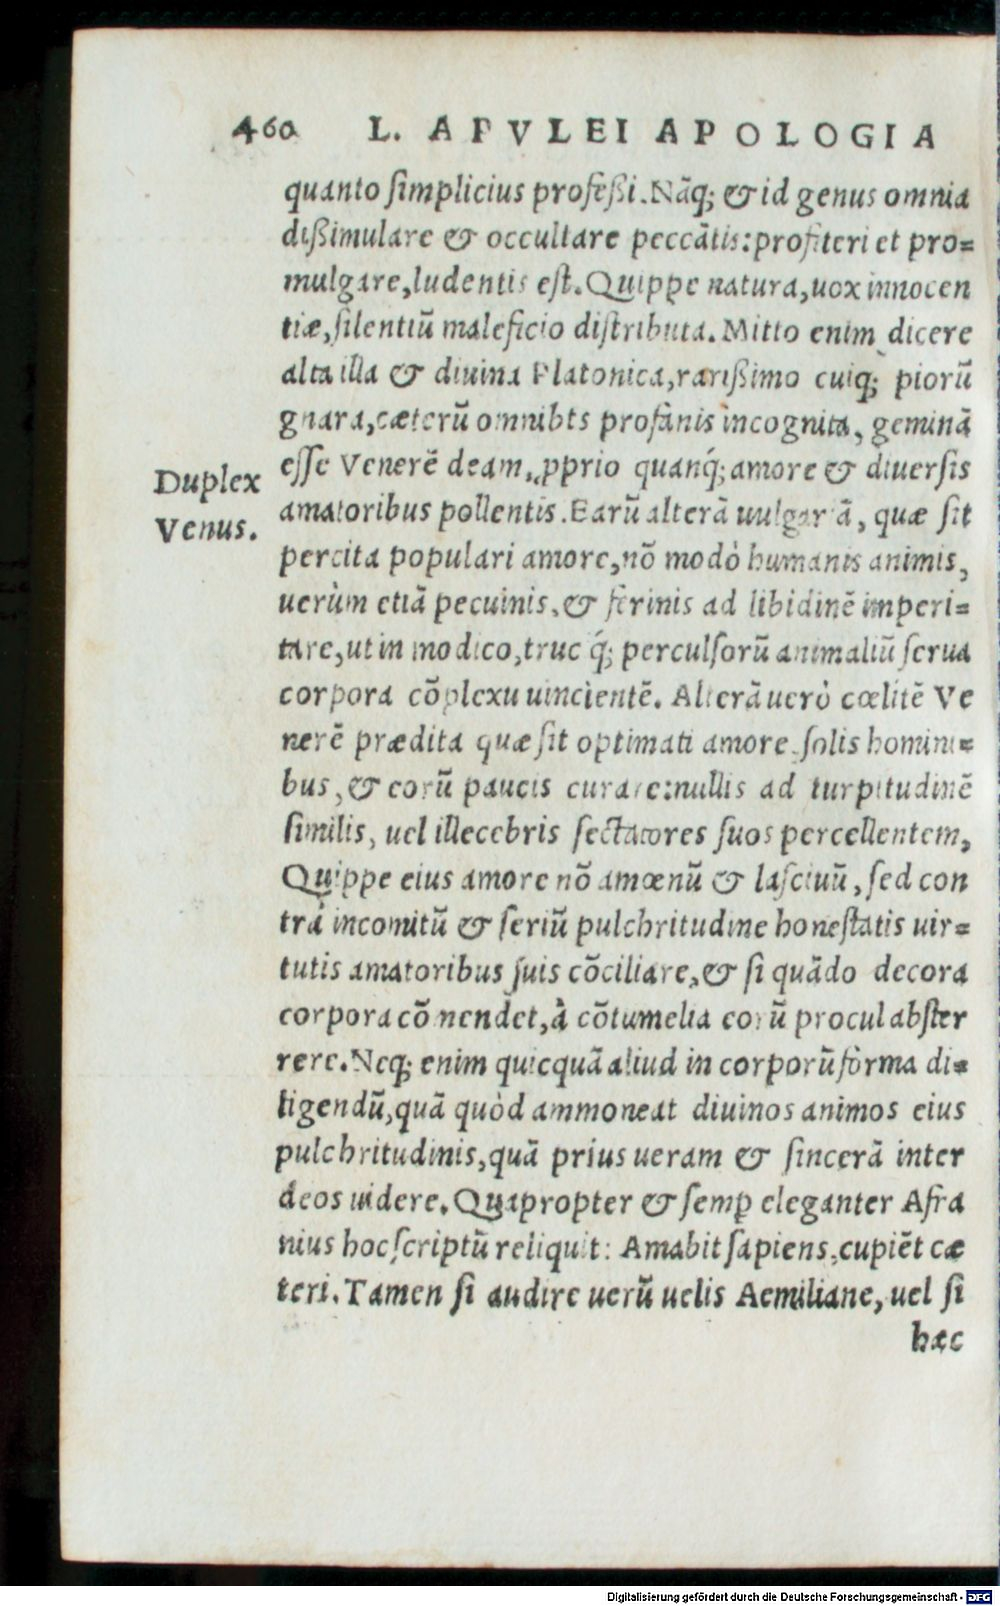 460 L. APVLEI APOLOGIA
quanto simplicius profeßi. Nāq; & id genus omnia
dißimulare & occultare peccātis: profiteri et pro=
mulgare, ludentis est. Quippe natura, uox innocen
tiæ, silentiū maleficio distributa. Mitto enim dicere
alta illa & diuina Platonica, rarißimo cuiq; piorū
gnara, cæterū omnibts profanis incognita, geminā
Duplex
Venus.
esse Venerē deam, ꝓprio quanq́; amore & diuersis
amatoribus pollentis. Earū alterā uulgariā, quæ sit
percita populari amore, nō modò humanis animis,
uerùm etiā pecuinis, & ferinis ad libidinē imperi=
tare, ut in modico, truc q́; perculsorū animaliū serua
corpora cōplexu uincientē. Alterā uerò cœlitē Ve
nerē prædita quæ sit optimati amore solis homini=
bus, & eorū paucis curare: nullis ad turpitudinē
similis, uel illecebris sectatores suos percellentem,
Quippe eius amore nō amœnū & lasciuū, sed con
trà incomitū & seriū pulchritudine honestatis uir=
tutis amatoribus suis cōciliare, & si quādo decora
corpora cōmendet, à cōtumelia eorū procul abster
rere. Neq; enim quicquā aliud in corporū forma di=
ligendū, quā quòd ammoneat diuinos animos eius
pulchritudinis, quā prius ueram & sincerā inter
deos uidere. Quapropter & semꝑ eleganter Afra
nius hoc scriptū reliquit: Amabit sapiens, cupiēt cæ
teri. Tamen si audire uerū uelis Aemiliane, uel si
hæc
Digitalisierung gefördert durch die Deutsche Forschungsgemeinschaft - DFG